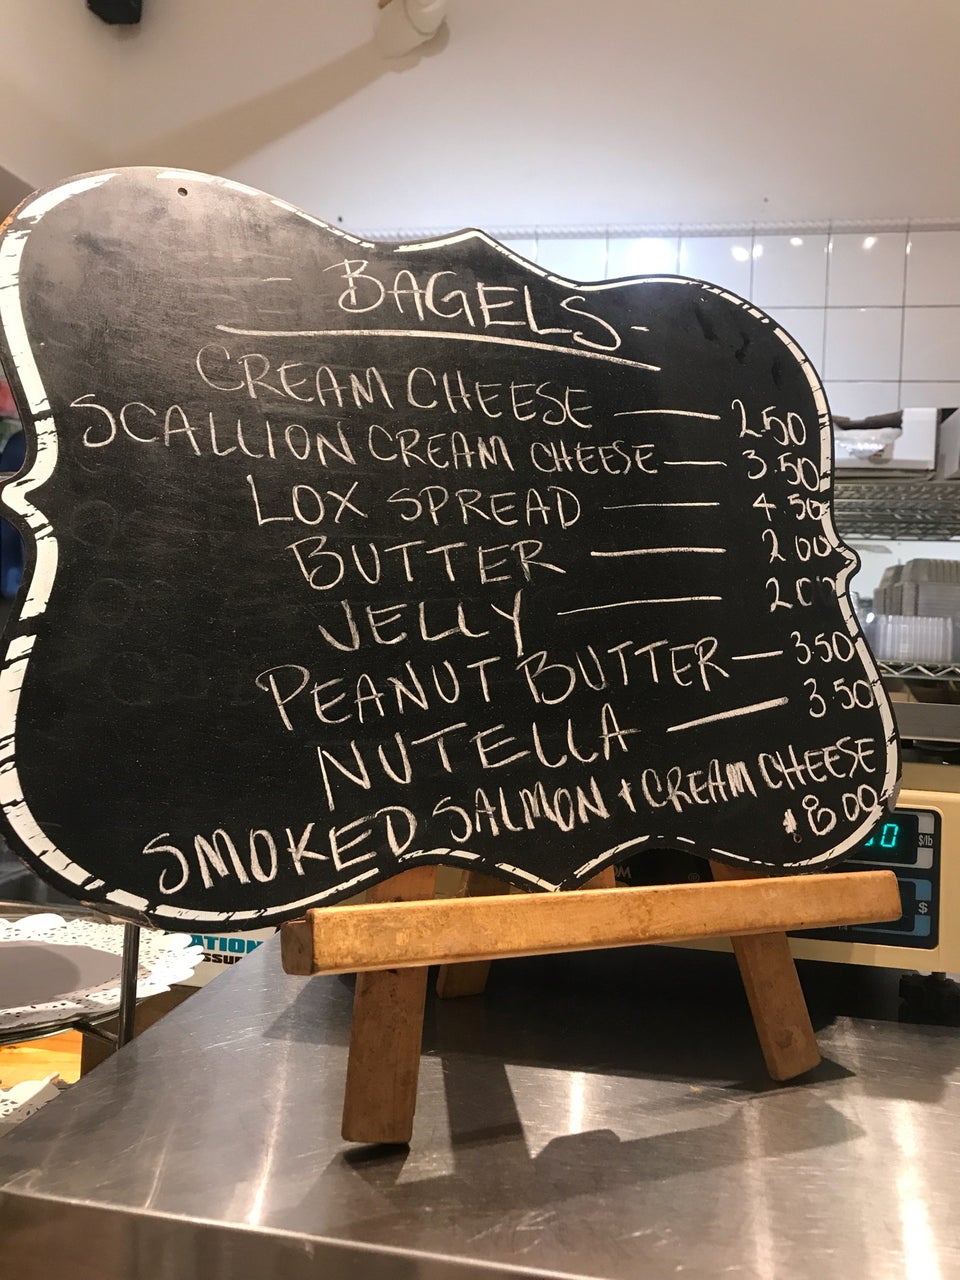 - BAGELS -
CREAM CHEESE — 2 50
SCALLION CREAM CHEESE — 3.50
LOX SPREAD — 4 50
BUTTER — 2 00
JELLY — 2 00
PEANUT BUTTER — 3.50
NUTELLA — 3 50
SMOKED SALMON + CREAM CHEESE
$8 00
$/lb
$
ATION
SSU